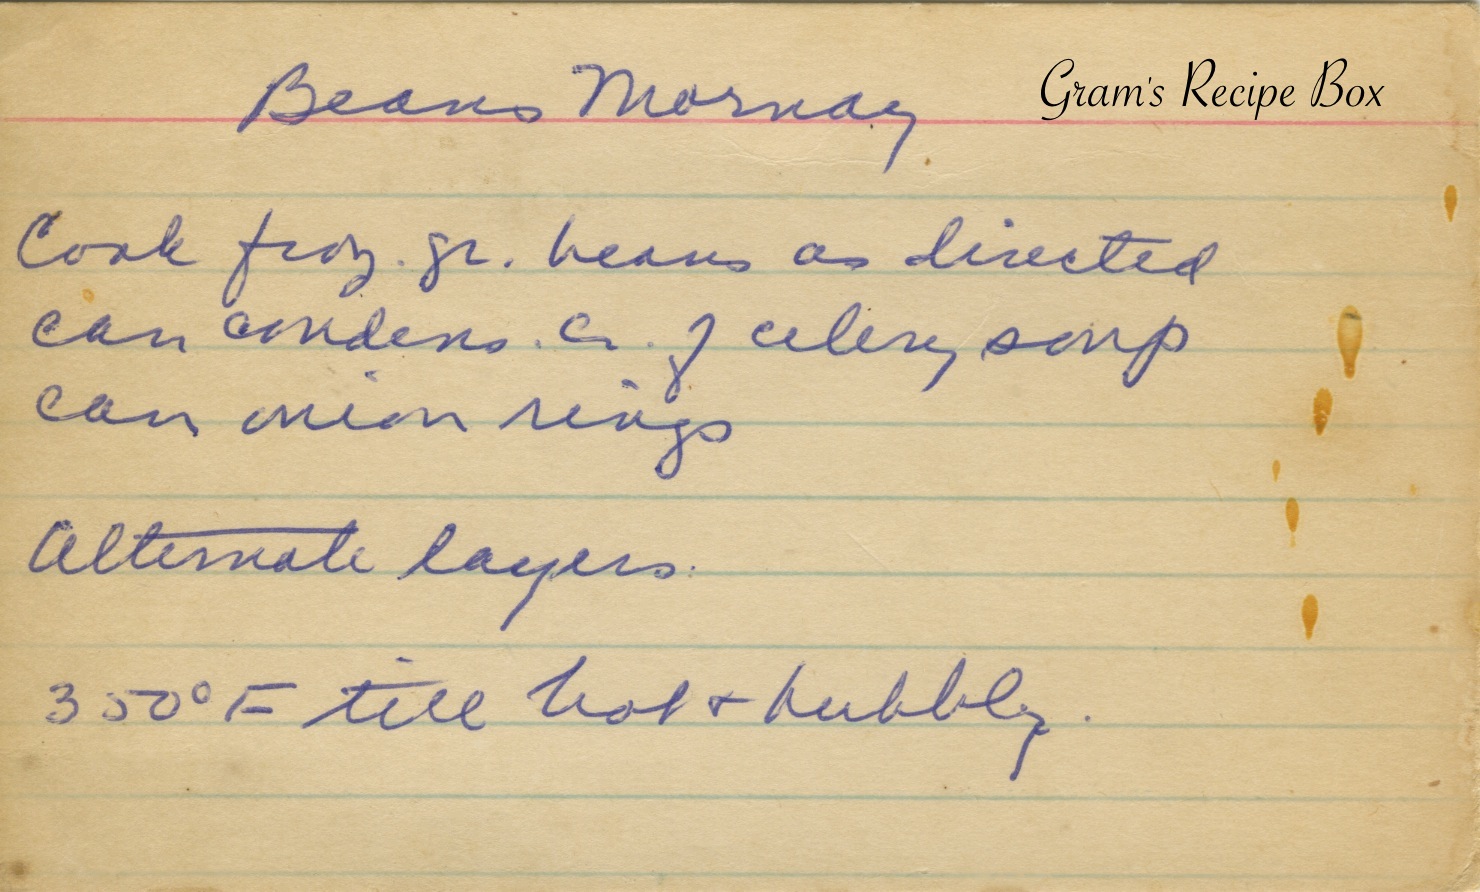 Beans Mornay
Gram's Recipe Box
Cook froz. gr. beans as directed
can condens. cr. of celery soup
can onion rings
Alternate layers.
350° F till hot + bubbly.